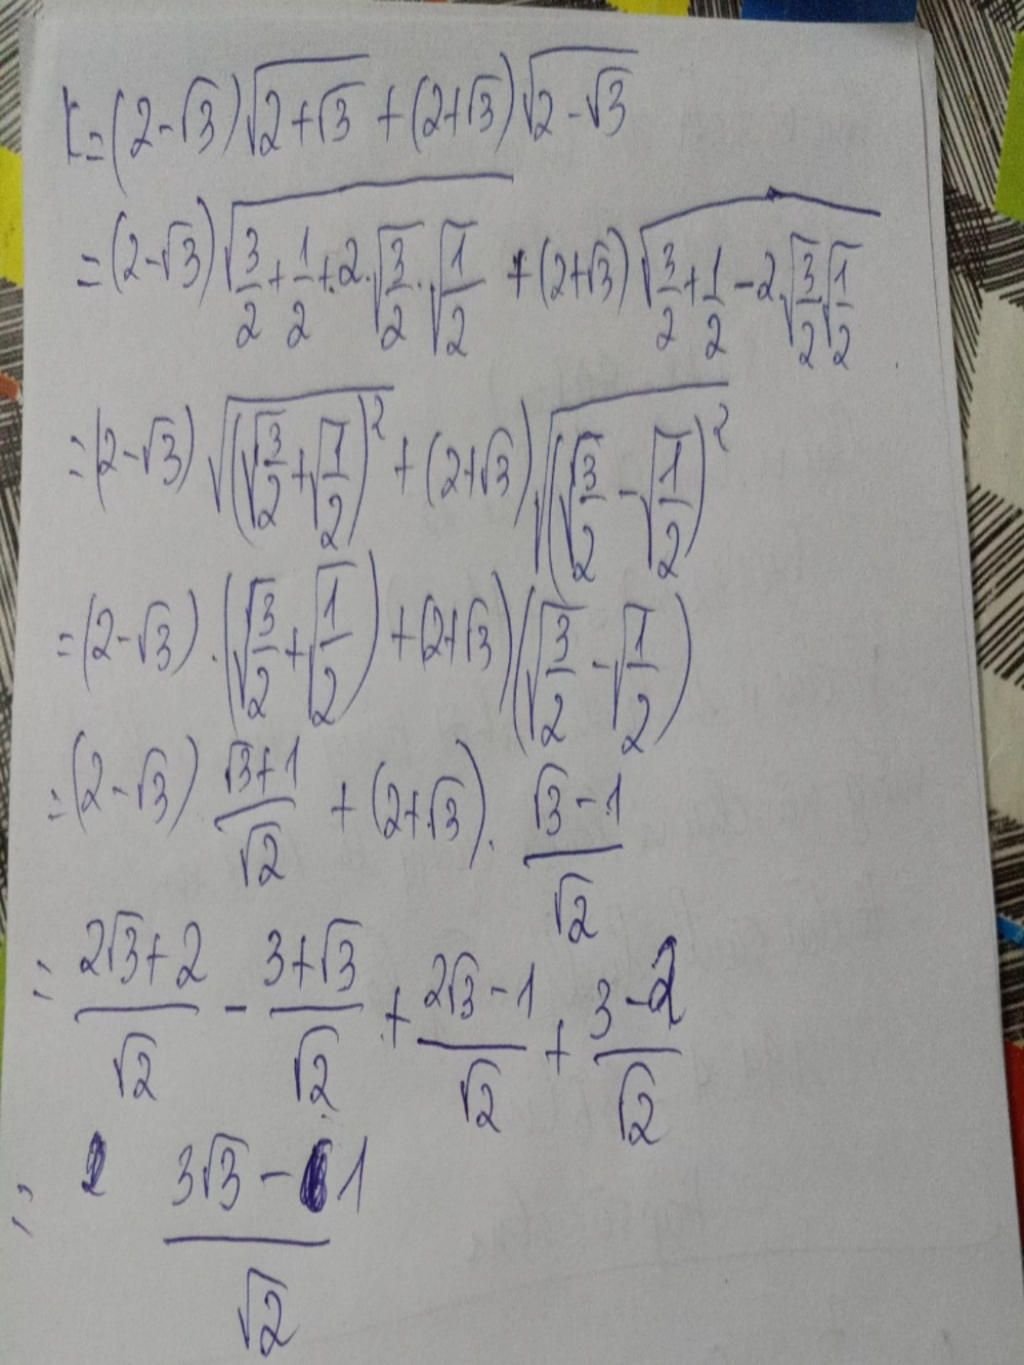 K=(2-√3)√(2+√3) + (2+√3)√(2-√3)
=(2-√3)√(3/2+1/2+2.√(3/2).√(1/2)) + (2+√3)√(3/2+1/2-2√(3/2)√(1/2))
=(2-√3)√((√(3/2)+√(1/2))²) + (2+√3)√((√(3/2)-√(1/2))²)
=(2-√3).(√(3/2)+√(1/2)) + (2+√3)(√(3/2)-√(1/2))
=(2-√3).(√3+1)/√2 + (2+√3).(√3-1)/√2
= (2√3+2)/√2 - (3+√3)/√2 + (2√3-1)/√2 + (3-2)/√2
= (3√3-1)/√2